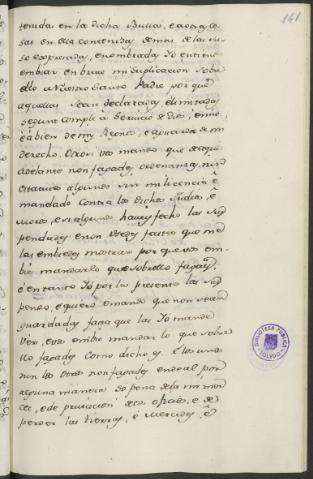 141
tenidas en la dicha Bulla, e a otras co-
sas en ella contenidas demas de las su-
so espresadas, e nombradas Yo entiendo
embiar en breve mi suplicacion sobre
ello a Nuestro Santo Padre por que
aquellas sean declaradas, e limitadas
segunt cumple a servicio de Dios, e mio,
e a bien de my Reyno, e a guarda de mi
derecho. Otrosi vos mando que de aqui
adelante non fagades, ordenanza, nin
estatuto alguno sin mi licencia, e
mandado contra los dichos Judios, e
Moros, e si algunos haveis fecho las sus-
pendades, e non usedes fasta que me
las embiedes mostrar por que vos em-
bie mandar lo que sobrello fagays,
e entanto Yo por la presente las sus-
pendo, e quiero, e mando que non sean
guardadas fasta que las Yo mande
ver, e vos embie mandar lo que sobre
ello fagades como dicho es. E los unos
nin los otros non fagades ende al por
alguna manera so pena de la mi mer-
ced, e de privacion de los oficios, e de
perder las tierras, e mercedes, e
BIBLIOTECA PUBLICA
TOLEDO